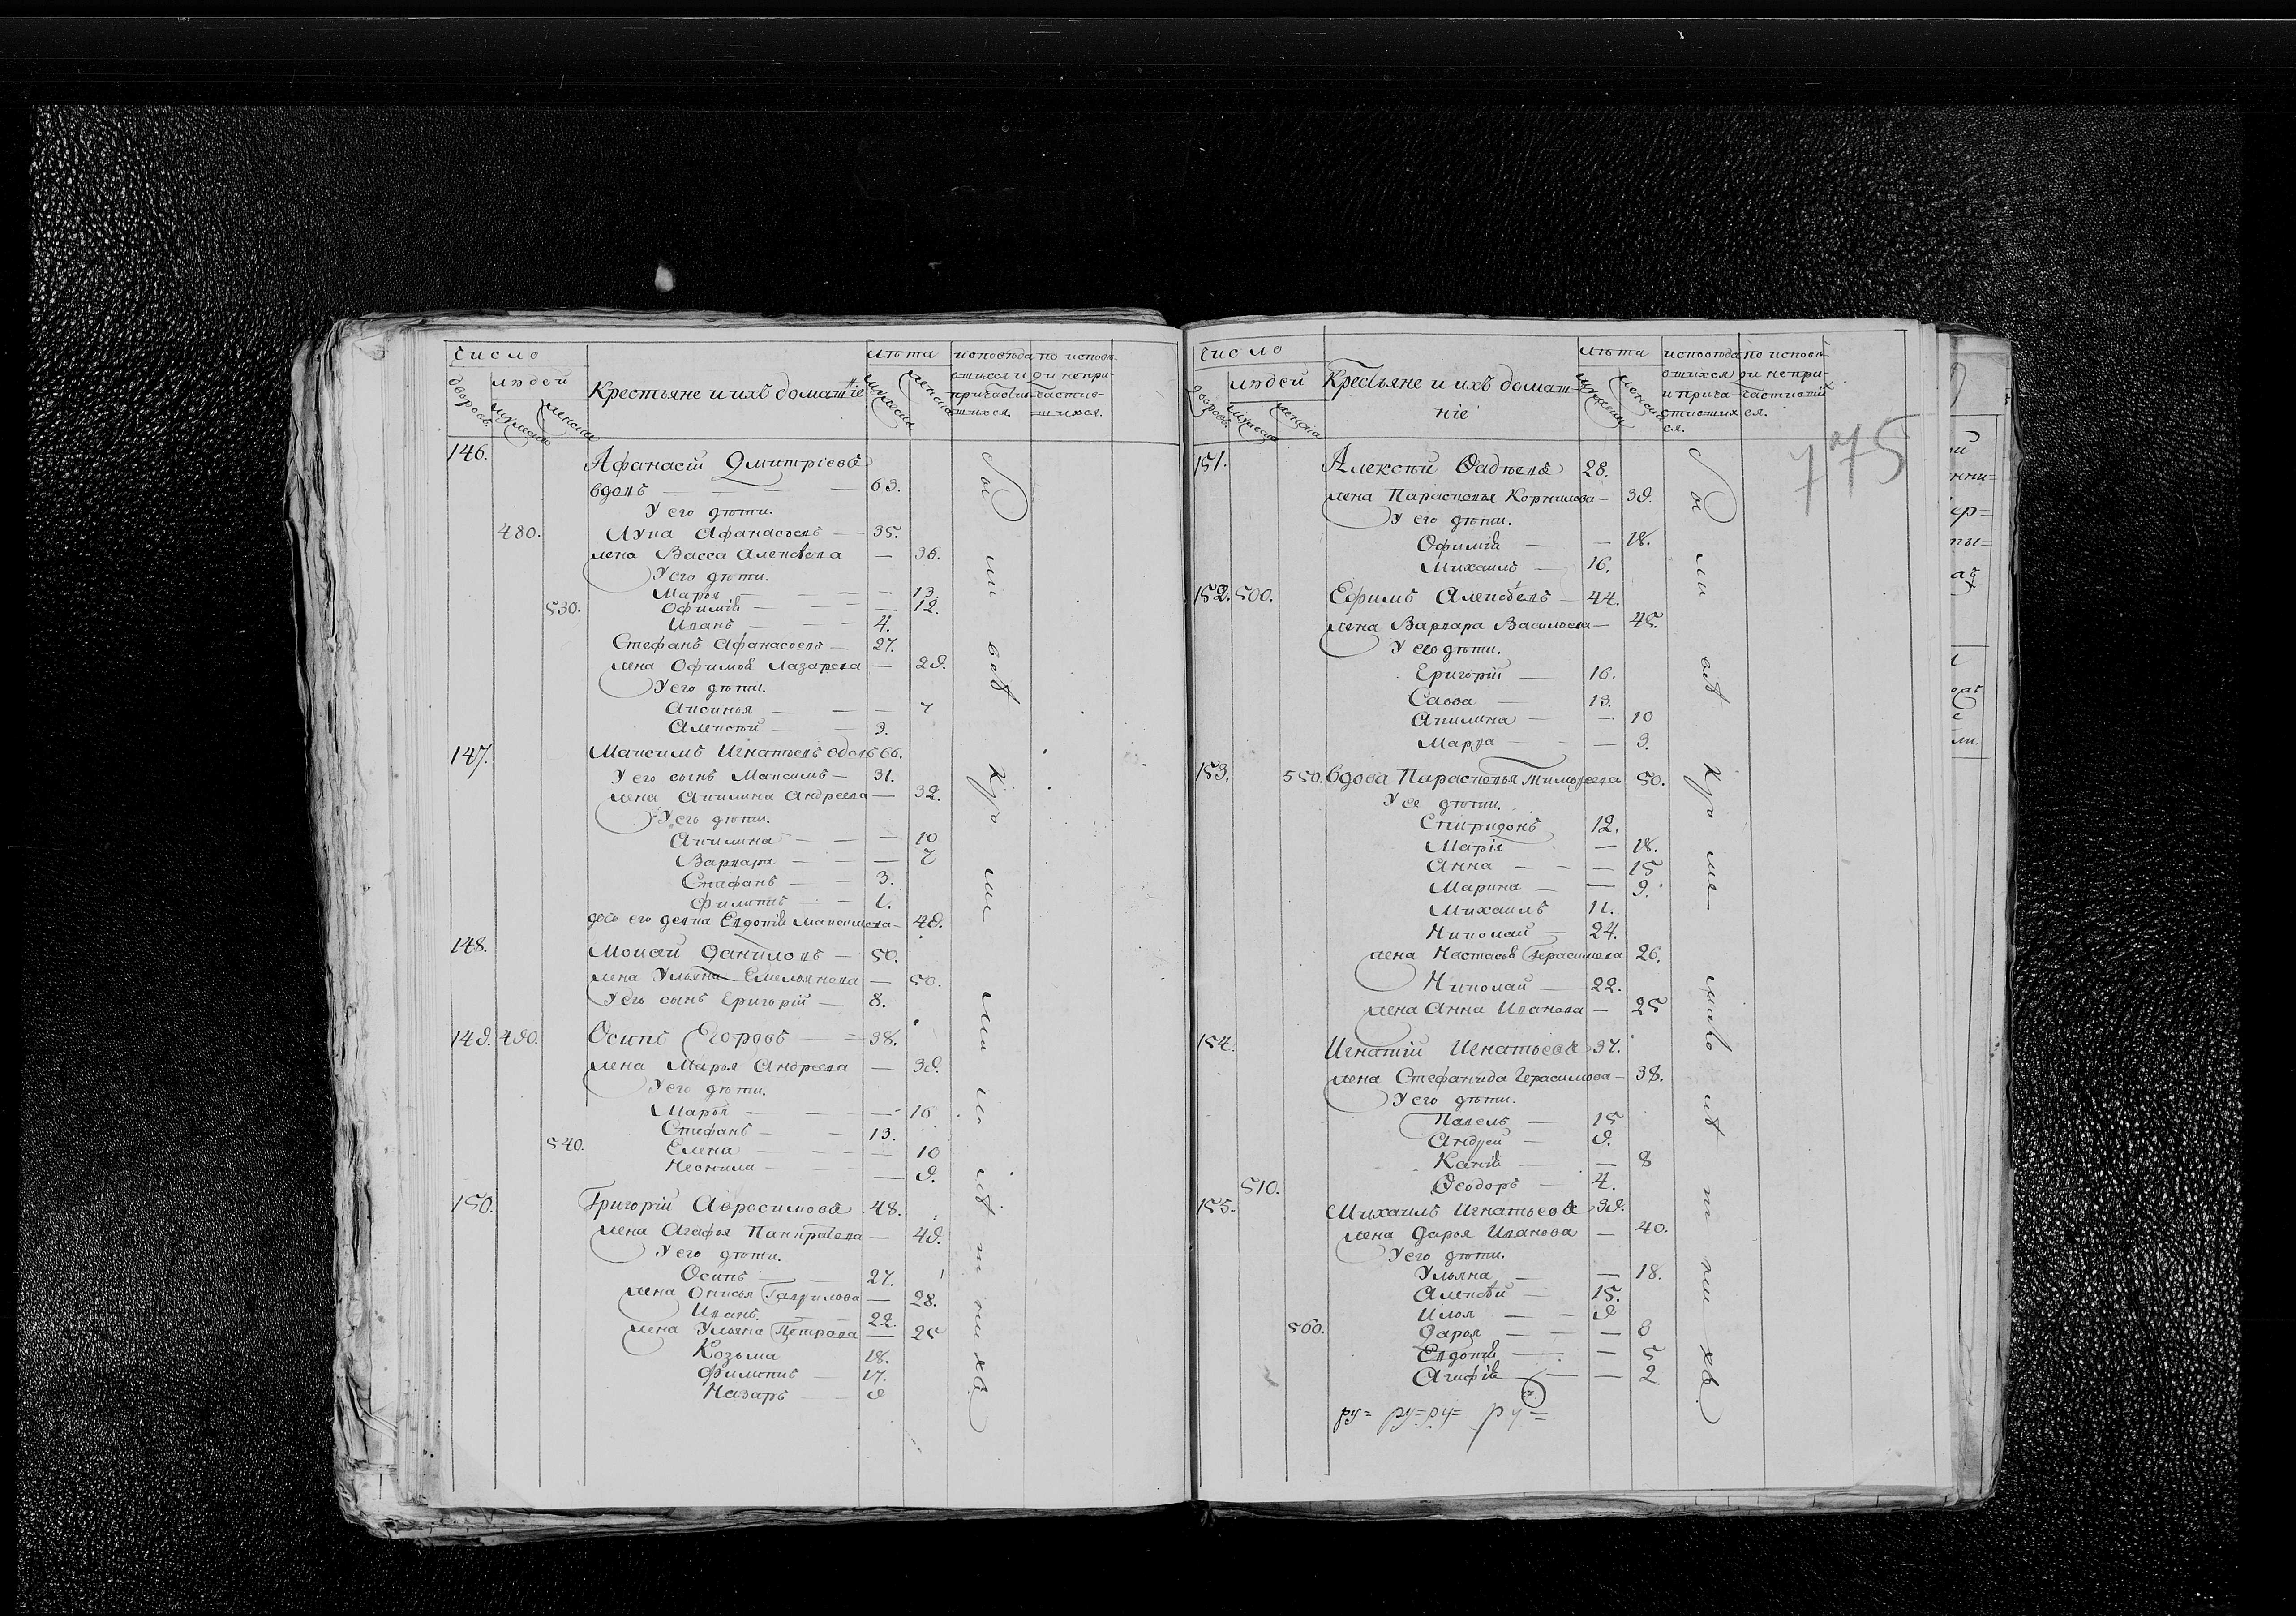 число
людей
дворовъ
мужеска
женска
Крестьяне и ихъ домашніе
лѣта
мужеска
женска
исповѣда
вшихся и
причасти
вшихся
по исповѣ
ди непри-
частив-
шихся.
146. Афанасій Дмитріевъ
вдовъ — 63.
У его дѣти.
480. Лупа Афанасьевъ — 35.
жена Васса Алексѣева — 36.
У его дѣти.
Марья — 13.
530. Офимія — 12.
Иванъ — 4.
Стефанъ Афанасьевъ — 27.
жена Офимья Лазарева — 29.
У его дѣти.
Аксинья — 7
Алексѣй — 3.
147. Максимъ Игнатьевъ вдовъ 66.
У его сынъ Максимъ — 31.
жена Акилина Андреева — 32.
У его дѣти.
Акилина — 10
Варвара — 7
Стефанъ — 3.
Филиппъ — 1.
дочь его девка Евдокія Максимова — 49.
148. Моисей Даниловъ — 50.
жена Ульяна Емельянова — 50.
У его сынъ Григорій — 8.
149. 490. Осипъ Егоровъ — 38.
жена Марья Андреева — 39.
У его дѣти.
Марья — 16
Стефанъ — 13.
540. Елена — 10
Неонила — 9.
150. Григорій Авросимовъ 48.
жена Агафья Панкратьева — 49.
У его дѣти.
Осипъ — 27.
жена Онисья Гаврилова — 28.
Иванъ. — 22.
жена Ульяна Петрова — 25
Козьма 18.
Филиппъ — 17.
Назаръ — 9
число
людей
дворовъ
мужеска
женска
Крестьяне и ихъ домаш-
ніе
лѣта
мужеска
женска
исповѣда
вшихся
и прича-
стивших
ся.
по исповѣ
ди непри-
частивших
ся.
775
151. Алексѣй Фадѣевъ 28.
жена Парасковья Корнилова — 39.
У его дѣти.
Офимія — 18.
Михаилъ — 16.
152. 500. Ефимъ Алексѣевъ — 44.
жена Варвара Васильева — 45.
У его дѣти.
Григорій — 16.
Савва — 13.
Акилина — 10
Марѳа — 3.
153. 550. Вдова Парасковья Тимофеева 50.
У ее дѣти.
Спиридонъ 12.
Марія — 18.
Анна — 15
Марина — 9.
Михаилъ 11.
Николай — 24.
жена Настасья Герасимова 26.
Николай — 22.
жена Анна Иванова — 25
154. Игнатій Игнатьевъ 37.
жена Стефанида Герасимова — 38.
У его дѣти.
Павелъ — 15
Андрей — 9.
— 8
510. Ѳеодоръ — 4.
155. Михаилъ Игнатьевъ 39.
жена Дарья Иванова — 40.
У его дѣти.
Ульяна — 18.
Алексѣй — 15.
Илья — 9
560. Дарья — 8
Евдокія — 5
Агафія — 2
ру= ру=ру= ру=